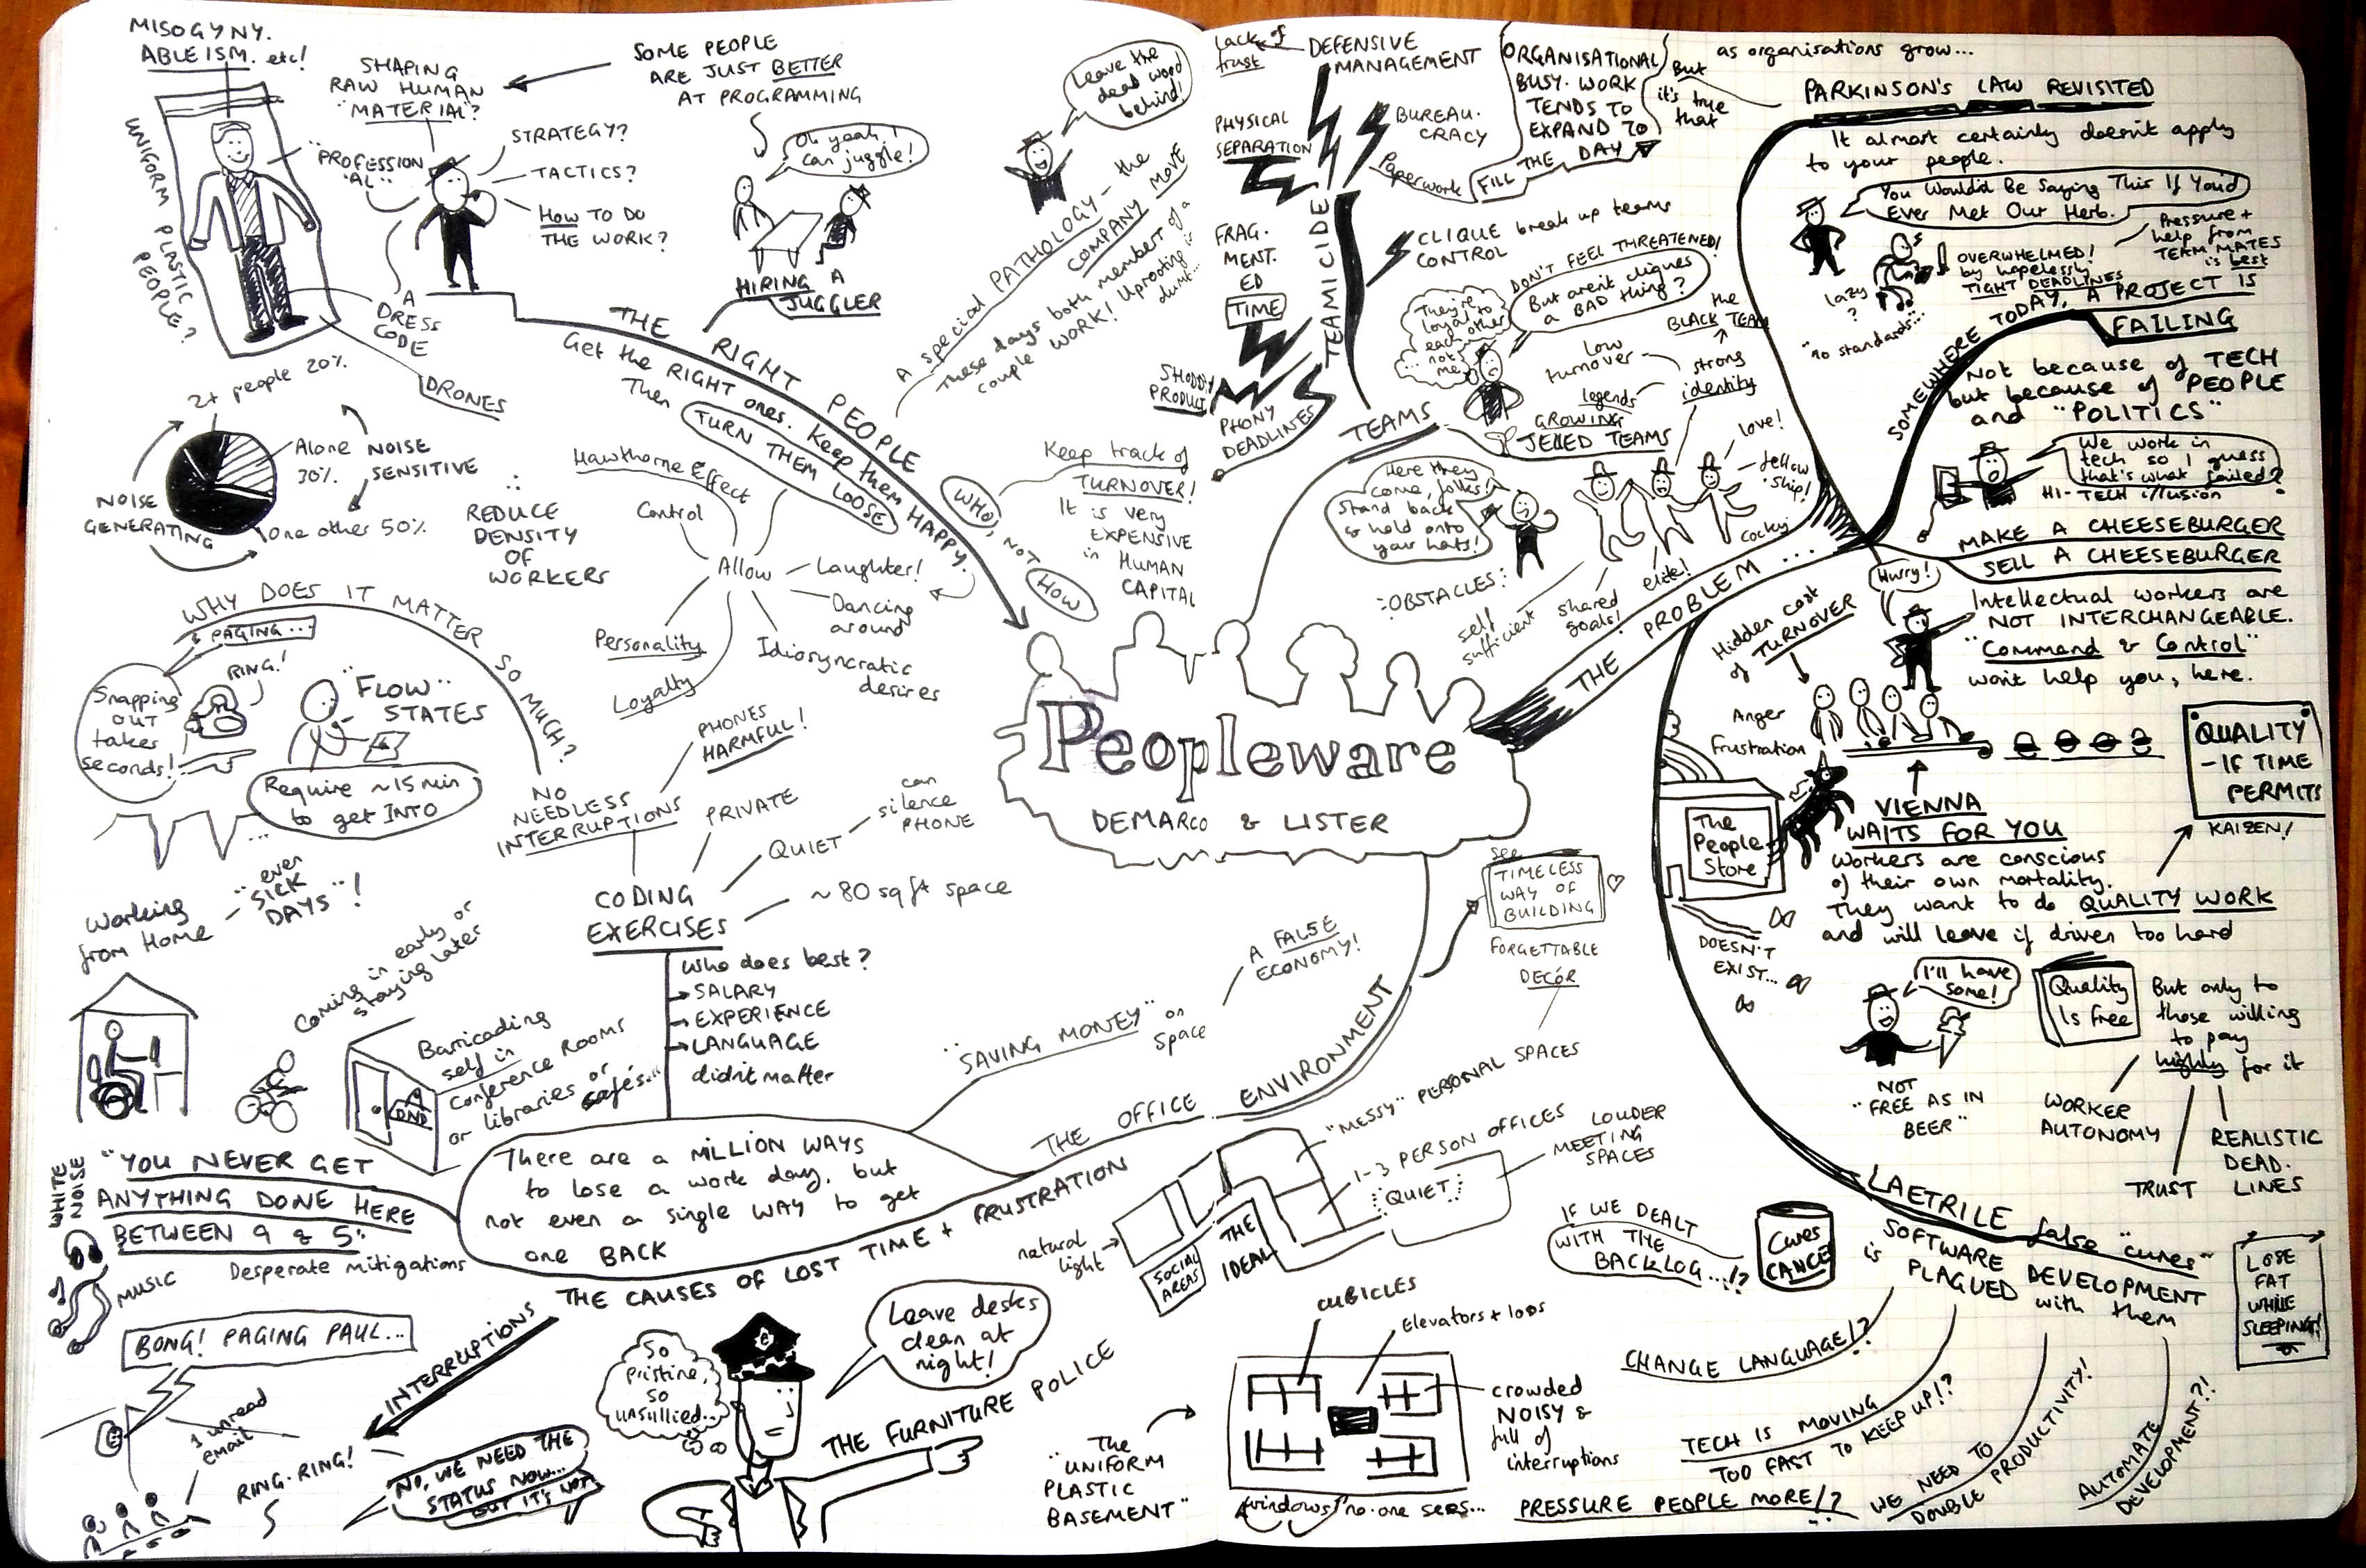 MISOGYNY.
ABLEISM. etc!
UNIFORM PLASTIC
PEOPLE?
SHAPING
RAW HUMAN
"MATERIAL"?
SOME PEOPLE
ARE JUST BETTER
AT PROGRAMMING
"PROFESSION
AL"
STRATEGY?
TACTICS?
HOW TO DO
THE WORK?
A
DRESS
CODE
DRONES
Oh yeah, I
can juggle!
HIRING A
JUGGLER
THE RIGHT PEOPLE
Get the RIGHT ones. Keep them HAPPY.
Then TURN THEM LOOSE
Leave the
dead wood
behind!
A special PATHOLOGY - the
COMPANY MOVE
These days both members of a
couple WORK! Uprooting is
dumb...
WHO, NOT
HOW
Keep track of
TURNOVER!
It is very
EXPENSIVE
in HUMAN
CAPITAL
Hawthorne Effect
Control
Allow
Laughter!
Dancing
around
Idiosyncratic
desires
Personality
Loyalty
2+ people 20%
Alone
30%
One other 50%
NOISE
SENSITIVE
NOISE
GENERATING
∴
REDUCE
DENSITY
OF
WORKERS
WHY DOES IT MATTER SO MUCH?
PAGING...
RING!
Snapping
out
takes
seconds!
"FLOW"
STATES
Require ~15 min
to get INTO
...
NO
NEEDLESS
INTERRUPTIONS
PHONES
HARMFUL!
PRIVATE
QUIET
can
silence
PHONE
~80 sq ft space
CODING
EXERCISES
Who does best?
SALARY
EXPERIENCE
LANGUAGE
didn't matter
Working
from Home
"even
SICK
DAYS"!
Coming in early or
staying later
Barricading
self in
conference rooms
or libraries or
cafés...
DND
"YOU NEVER GET
ANYTHING DONE HERE
BETWEEN 9 & 5"
Desperate mitigations
WHITE
NOISE
MUSIC
There are a MILLION WAYS
to lose a work day, but
not even a single WAY to get
one BACK
THE CAUSES OF LOST TIME + FRUSTRATION
INTERRUPTIONS
BONG! PAGING PAUL...
1 unread
email
RING-RING!
NO, WE NEED THE
STATUS NOW...
BUT IT'S NOT
So
pristine,
so
unsullied...
Leave desks
clean at
night!
THE FURNITURE POLICE
Peopleware
DEMARCO & LISTER
THE OFFICE ENVIRONMENT
"SAVING MONEY" on
space
A FALSE
ECONOMY!
see
TIMELESS
WAY OF
BUILDING
FORGETTABLE
DECÓR
"MESSY" PERSONAL SPACES
1-3 PERSON OFFICES
LOUDER
MEETING
SPACES
QUIET
natural
light
SOCIAL
AREAS
THE
IDEAL
CUBICLES
Elevators + loos
crowded
NOISY &
full of
interruptions
The
"UNIFORM
PLASTIC
BASEMENT"
windows no-one sees...
lack of
trust
DEFENSIVE
MANAGEMENT
PHYSICAL
SEPARATION
BUREAU-
CRACY
Paperwork
ORGANISATIONAL
BUSY-WORK
TENDS TO
EXPAND TO
FILL THE DAY
But
it's true
that
as organisations grow...
FRAG-
MENT-
ED
TIME
TEAMICIDE
CLIQUE
CONTROL
break up teams
SHODDY
PRODUCT
PHONY
DEADLINES
DON'T FEEL THREATENED!
But aren't cliques
a BAD thing?
They're
loyal to
each
other
...not
me
TEAMS
GROWING
JELLED TEAMS
low
turnover
legends
the
BLACK TEAM
strong
identity
love!
fellow
-ship!
cocky
elite!
shared
goals!
self
sufficient
Here they
come, folks!
Stand back
& hold onto
your hats!
OBSTACLES:
THE PROBLEM...
PARKINSON'S LAW REVISITED
It almost certainly doesn't apply
to your people.
You Wouldn't Be Saying This If You'd
Ever Met Our Herb.
lazy
?
"no standards"...
OVERWHELMED!
by hopelessly
TIGHT DEADLINES
Pressure +
help from
TEAM MATES
is best
SOMEWHERE TODAY, A PROJECT IS
FAILING
Not because of TECH
but because of PEOPLE
and "POLITICS"
We work in
tech so I guess
that's what failed?
HI-TECH illusion
MAKE A CHEESEBURGER
SELL A CHEESEBURGER
Hurry!
Intellectual workers are
NOT INTERCHANGEABLE.
"Command & Control"
won't help you, here.
Hidden cost
of TURNOVER
Anger
frustration
The
People
Store
DOESN'T
EXIST...
VIENNA
WAITS FOR YOU
Workers are conscious
of their own mortality.
They want to do QUALITY WORK
and will leave if driven too hard
QUALITY
- IF TIME
PERMITS
KAIZEN!
I'll have
some!
NOT
"FREE AS IN
BEER"
Quality
Is Free
But only to
those willing
to pay
highly for it
WORKER
AUTONOMY
TRUST
REALISTIC
DEAD-
LINES
LAETRILE false "cures"
SOFTWARE DEVELOPMENT
is PLAGUED with them
Cures
CANCER
LOSE
FAT
WHILE
SLEEPING!
IF WE DEALT
WITH THE
BACKLOG...!?
CHANGE LANGUAGE!?
TECH IS MOVING
TOO FAST TO KEEP UP!?
PRESSURE PEOPLE MORE!?
WE NEED TO
DOUBLE PRODUCTIVITY!
AUTOMATE
DEVELOPMENT?!